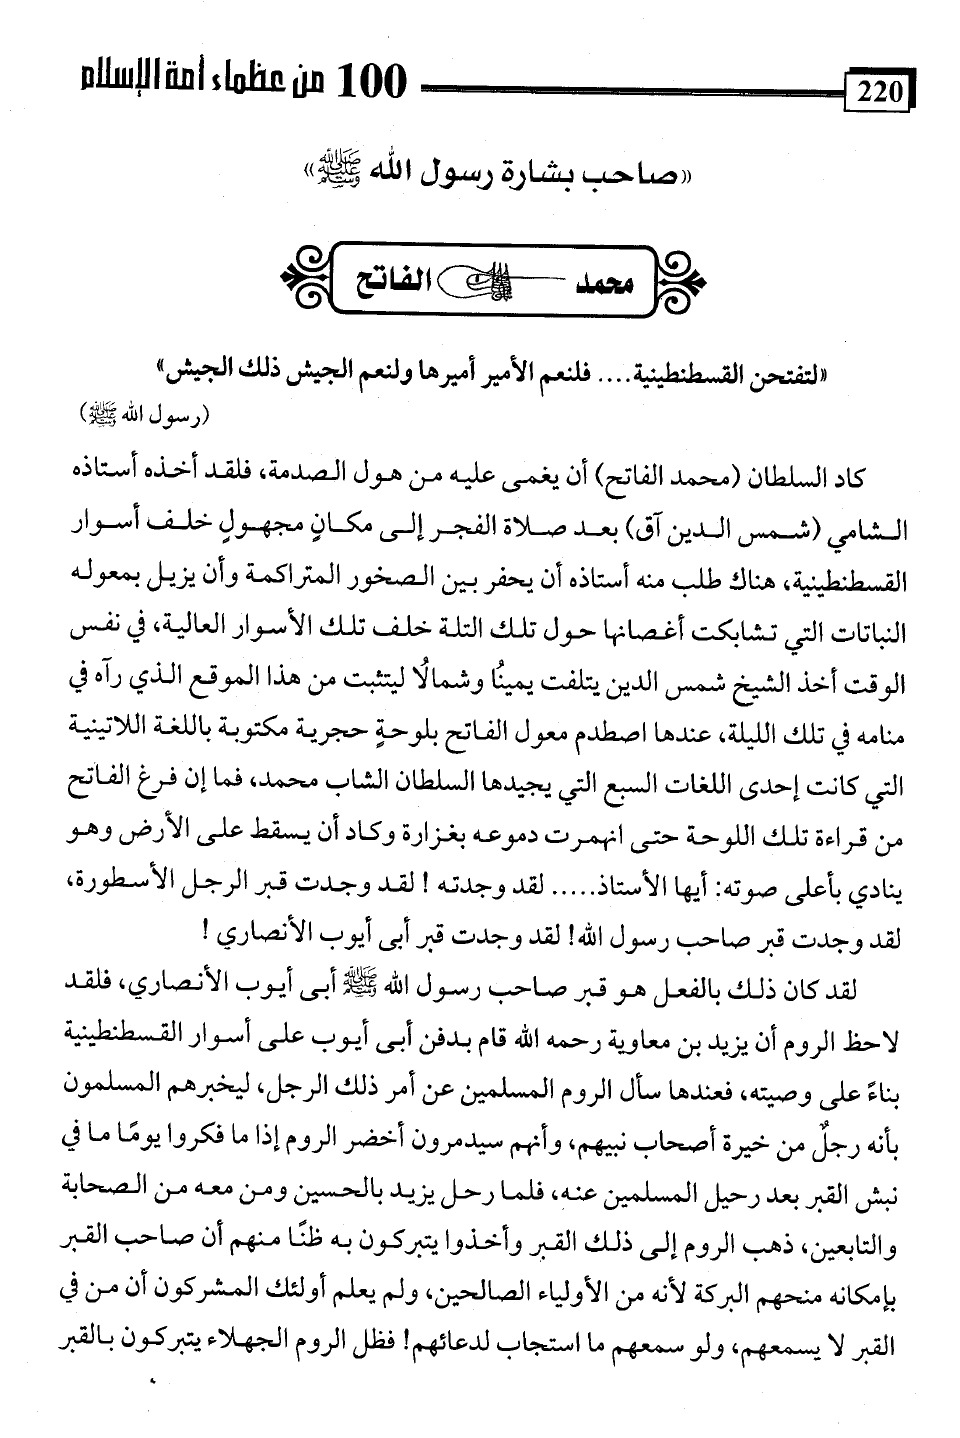 220
100 من عظماء أمة الإسلام
«صاحب بشارة رسول الله ﷺ»
محمد الفاتح
«لتفتحن القسطنطينية.... فلنعم الأمير أميرها ولنعم الجيش ذلك الجيش»
(رسول الله ﷺ)
كاد السلطان (محمد الفاتح) أن يغمى عليه من هول الصدمة، فلقد أخذه أستاذه
الشامي (شمس الدين آق) بعد صلاة الفجر إلى مكانٍ مجهولٍ خلف أسوار
القسطنطينية، هناك طلب منه أستاذه أن يحفر بين الصخور المتراكمة وأن يزيل بمعوله
النباتات التي تشابكت أغصانها حول تلك التلة خلف تلك الأسوار العالية، في نفس
الوقت أخذ الشيخ شمس الدين يتلفت يمينًا وشمالًا ليتثبت من هذا الموقع الذي رآه في
منامه في تلك الليلة، عندها اصطدم معول الفاتح بلوحةٍ حجرية مكتوبة باللغة اللاتينية
التي كانت إحدى اللغات السبع التي يجيدها السلطان الشاب محمد، فما إن فرغ الفاتح
من قراءة تلك اللوحة حتى انهمرت دموعه بغزارة وكاد أن يسقط على الأرض وهو
ينادي بأعلى صوته: أيها الأستاذ..... لقد وجدته ! لقد وجدت قبر الرجل الأسطورة،
لقد وجدت قبر صاحب رسول الله! لقد وجدت قبر أبى أيوب الأنصاري !
لقد كان ذلك بالفعل هو قبر صاحب رسول الله ﷺ أبى أيوب الأنصاري، فلقد
لاحظ الروم أن يزيد بن معاوية رحمه الله قام بدفن أبى أيوب على أسوار القسطنطينية
بناءً على وصيته، فعندها سأل الروم المسلمين عن أمر ذلك الرجل، ليخبرهم المسلمون
بأنه رجلٌ من خيرة أصحاب نبيهم، وأنهم سيدمرون أخضر الروم إذا ما فكروا يومًا ما في
نبش القبر بعد رحيل المسلمين عنه، فلما رحل يزيد بالحسين ومن معه من الصحابة
والتابعين، ذهب الروم إلى ذلك القبر وأخذوا يتبركون به ظنًا منهم أن صاحب القبر
بإمكانه منحهم البركة لأنه من الأولياء الصالحين، ولم يعلم أولئك المشركون أن من في
القبر لا يسمعهم، ولو سمعهم ما استجاب لدعائهم! فظل الروم الجهلاء يتبركون بالقبر